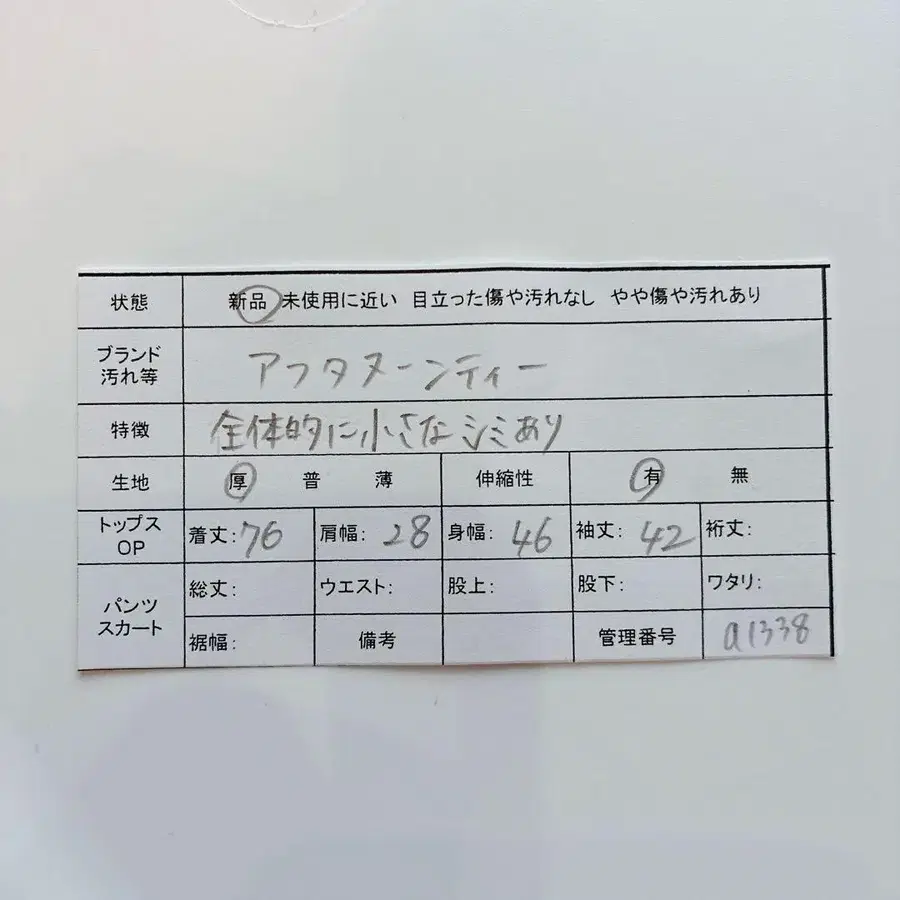 状態 新品 未使用に近い 目立った傷や汚れなし やや傷や汚れあり
ブランド
汚れ等 アフタヌーンティー
特徴 全体的に小さなシミあり
生地 厚 普 薄 伸縮性 有 無
トップス
OP 着丈:76 肩幅:28 身幅:46 袖丈:42 裄丈:
パンツ
スカート 総丈: ウエスト: 股上: 股下: ワタリ:
裾幅: 備考 管理番号 a1338